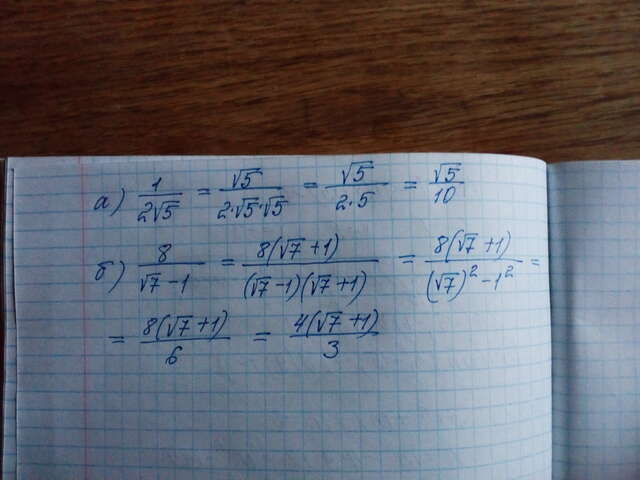 а) 1/(2√5) = √5/(2·√5·√5) = √5/(2·5) = √5/10
б) 8/(√7-1) = 8(√7+1)/((√7-1)(√7+1)) = 8(√7+1)/((√7)²-1²) =
= 8(√7+1)/6 = 4(√7+1)/3